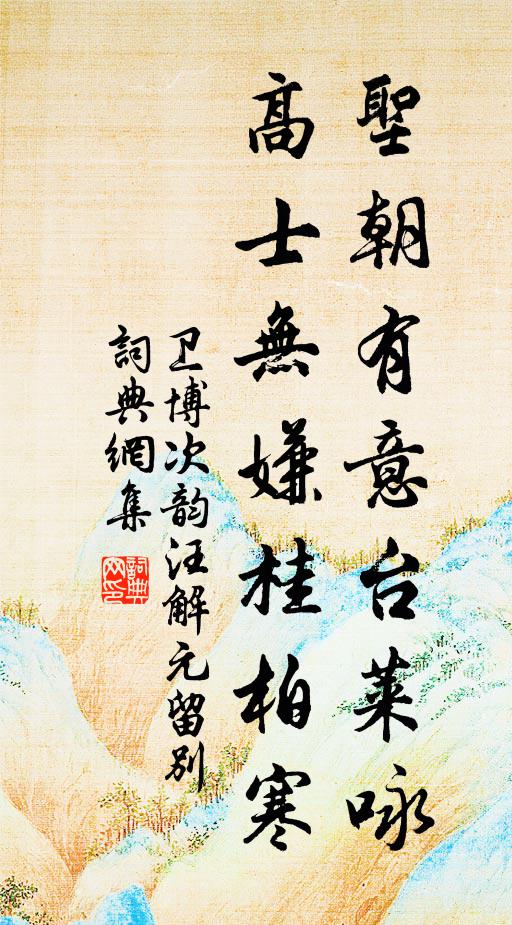 聖朝有意台萊咏
高士無嫌桂柏寒
卫博次韵汪解元留别
詞典網集
詞典网印